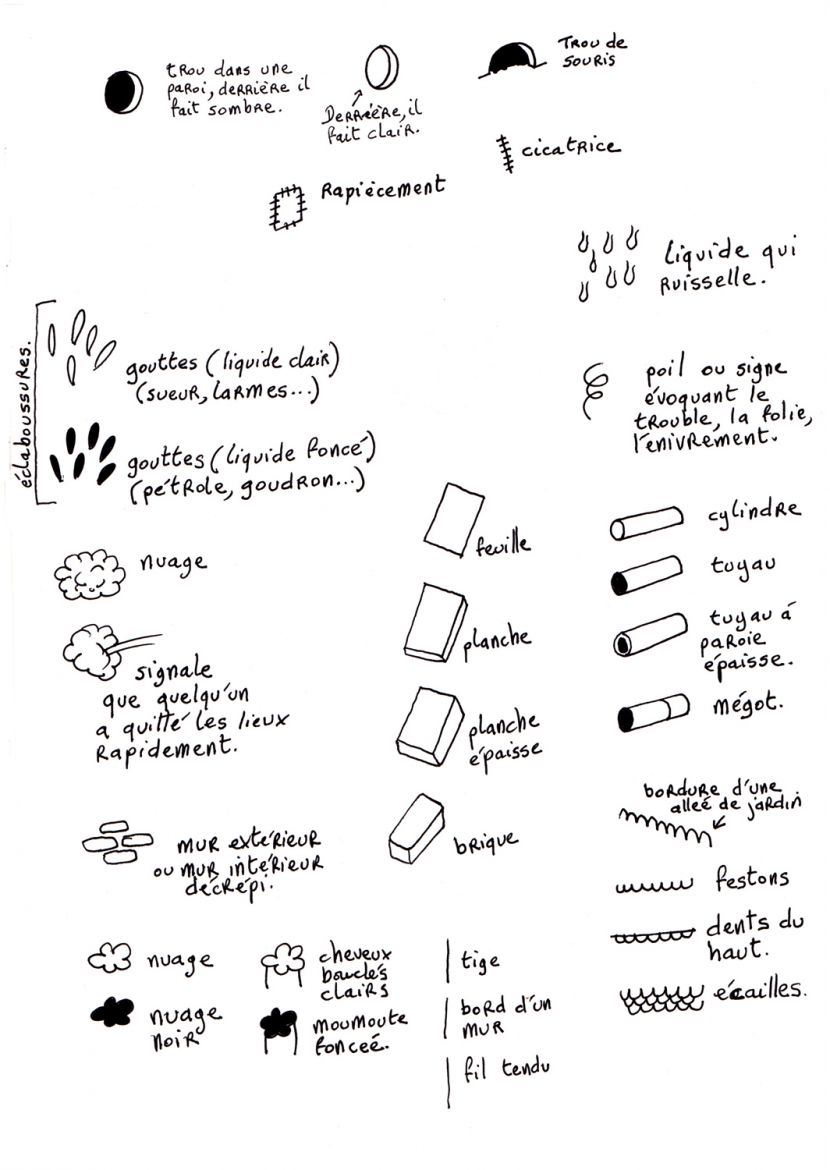 trou dans une
paroi, derrière il
fait sombre.
Derrière, il
fait clair.
Trou de
souris
cicatrice
Rapiècement
liquide qui
ruisselle.
éclaboussures.
gouttes (liquide clair)
(sueur, larmes...)
gouttes (liquide foncé)
(pétrole, goudron...)
poil ou signe
évoquant le
trouble, la folie,
l'enivrement.
nuage
signale
que quelqu'un
a quitté les lieux
rapidement.
feuille
planche
planche
épaisse
brique
cylindre
tuyau
tuyau à
paroie
épaisse.
mégot.
mur extérieur
ou mur intérieur
décrépi.
bordure d'une
alleé de jardin
festons
dents du
haut.
écailles.
nuage
nuage
noir
cheveux
bouclés
clairs
moumoute
fonceé.
tige
bord d'un
mur
fil tendu